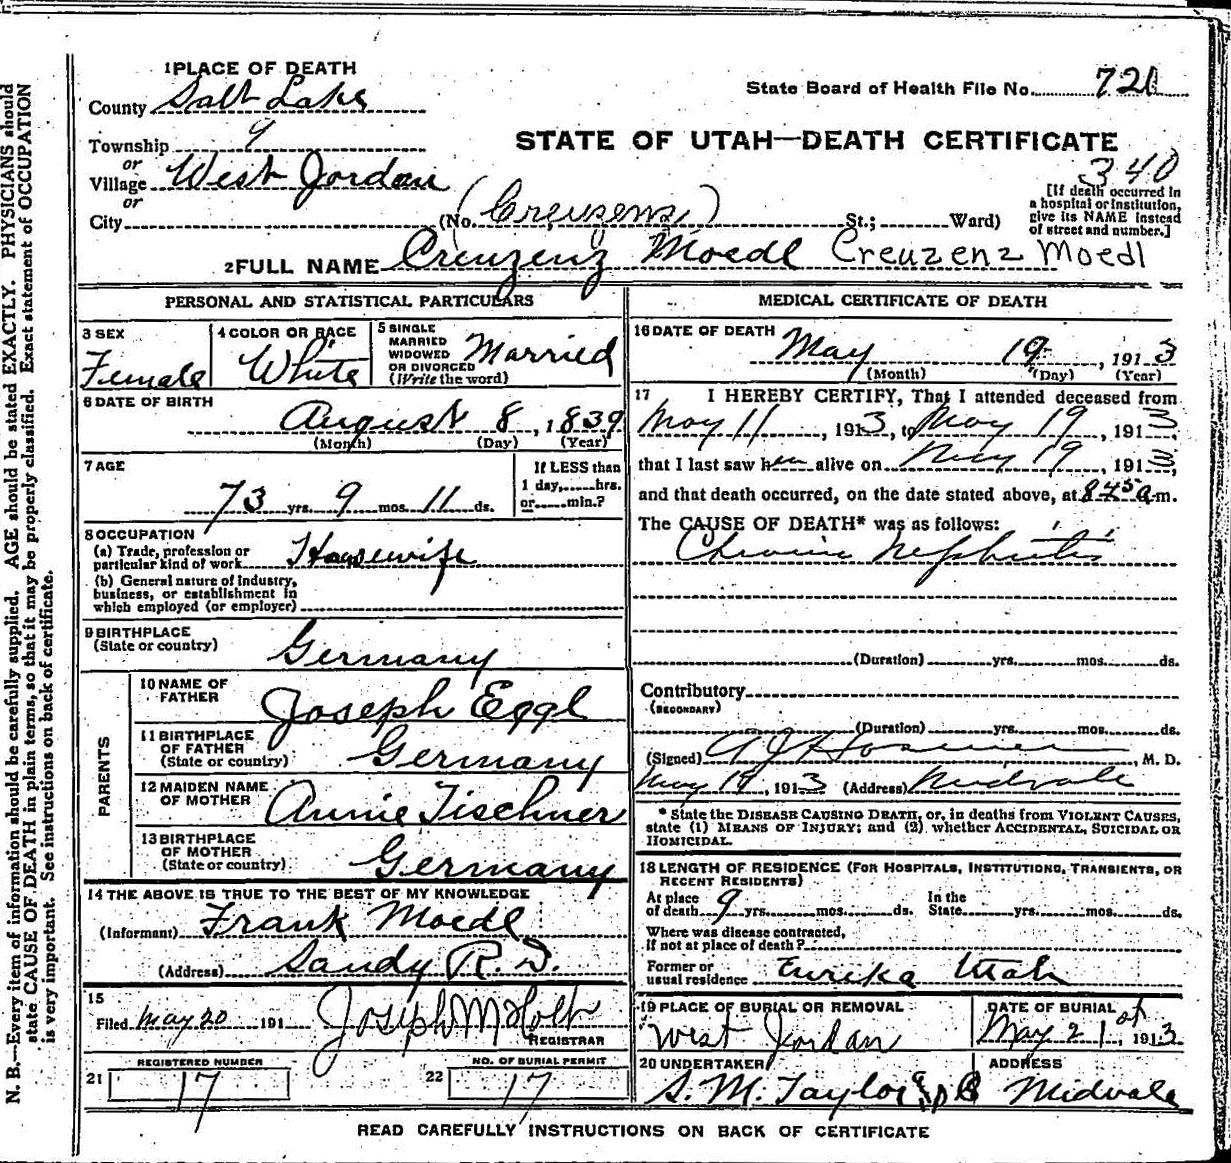 N. B.—Every item of information should be carefully supplied. AGE should be stated EXACTLY. PHYSICIANS should
state CAUSE OF DEATH in plain terms, so that it may be properly classified. Exact statement of OCCUPATION
is very important. See instructions on back of certificate.
1 PLACE OF DEATH
County Salt Lake
State Board of Health File No. 721
Township 9
STATE OF UTAH—DEATH CERTIFICATE
or
Village West Jordan
340
or
City (No. (Creuzens) St.; Ward)
[If death occurred in
a hospital or institution,
give its NAME instead
of street and number.]
2 FULL NAME Creuzenz Moedl Creuzenz Moedl
PERSONAL AND STATISTICAL PARTICULARS
3 SEX
Female
4 COLOR OR RACE
White
5 SINGLE
MARRIED
WIDOWED
OR DIVORCED
(Write the word)
Married
6 DATE OF BIRTH
August 8, 1839
(Month) (Day) (Year)
7 AGE
73 yrs. 9 mos. 11 ds.
If LESS than
1 day, hrs.
or min.?
8 OCCUPATION
(a) Trade, profession or
particular kind of work Housewife
(b) General nature of industry,
business, or establishment in
which employed (or employer)
9 BIRTHPLACE
(State or country)
Germany
PARENTS
10 NAME OF
FATHER
Joseph Eggl
11 BIRTHPLACE
OF FATHER
(State or country)
Germany
12 MAIDEN NAME
OF MOTHER
Annie Tischner
13 BIRTHPLACE
OF MOTHER
(State or country)
Germany
14 THE ABOVE IS TRUE TO THE BEST OF MY KNOWLEDGE
(Informant) Frank Moedl
(Address) Sandy R. D.
15
Filed May 20 191 Joseph M Holt
REGISTRAR
REGISTERED NUMBER
21 17
NO. OF BURIAL PERMIT
22 17
MEDICAL CERTIFICATE OF DEATH
16 DATE OF DEATH
May 19, 1913
(Month) (Day) (Year)
17 I HEREBY CERTIFY, That I attended deceased from
May 11, 1913, to May 19, 1913,
that I last saw her alive on May 19, 1913,
and that death occurred, on the date stated above, at 845 a m.
The CAUSE OF DEATH* was as follows:
Chronic Nephritis
(Duration) yrs. mos. ds.
Contributory
(SECONDARY)
(Duration) yrs. mos. ds.
(Signed) M. D.
May 19, 1913 (Address) Midvale
* State the DISEASE CAUSING DEATH, or, in deaths from VIOLENT CAUSES,
state (1) MEANS OF INJURY; and (2) whether ACCIDENTAL, SUICIDAL OR
HOMICIDAL.
18 LENGTH OF RESIDENCE (FOR HOSPITALS, INSTITUTIONS, TRANSIENTS, OR
RECENT RESIDENTS)
At place
of death 9 yrs. mos. ds.
In the
State yrs. mos. ds.
Where was disease contracted,
If not at place of death?
Former or
usual residence Eureka Utah
19 PLACE OF BURIAL OR REMOVAL
West Jordan
DATE OF BURIAL
May 21st, 1913
20 UNDERTAKER
S. M. Taylor
ADDRESS
Midvale
READ CAREFULLY INSTRUCTIONS ON BACK OF CERTIFICATE